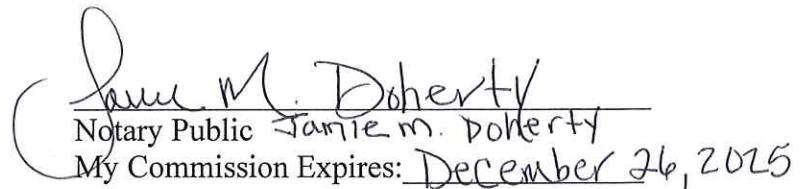 Jamie M. Doherty
Notary Public Jamie m. Doherty
My Commission Expires: December 26, 2025